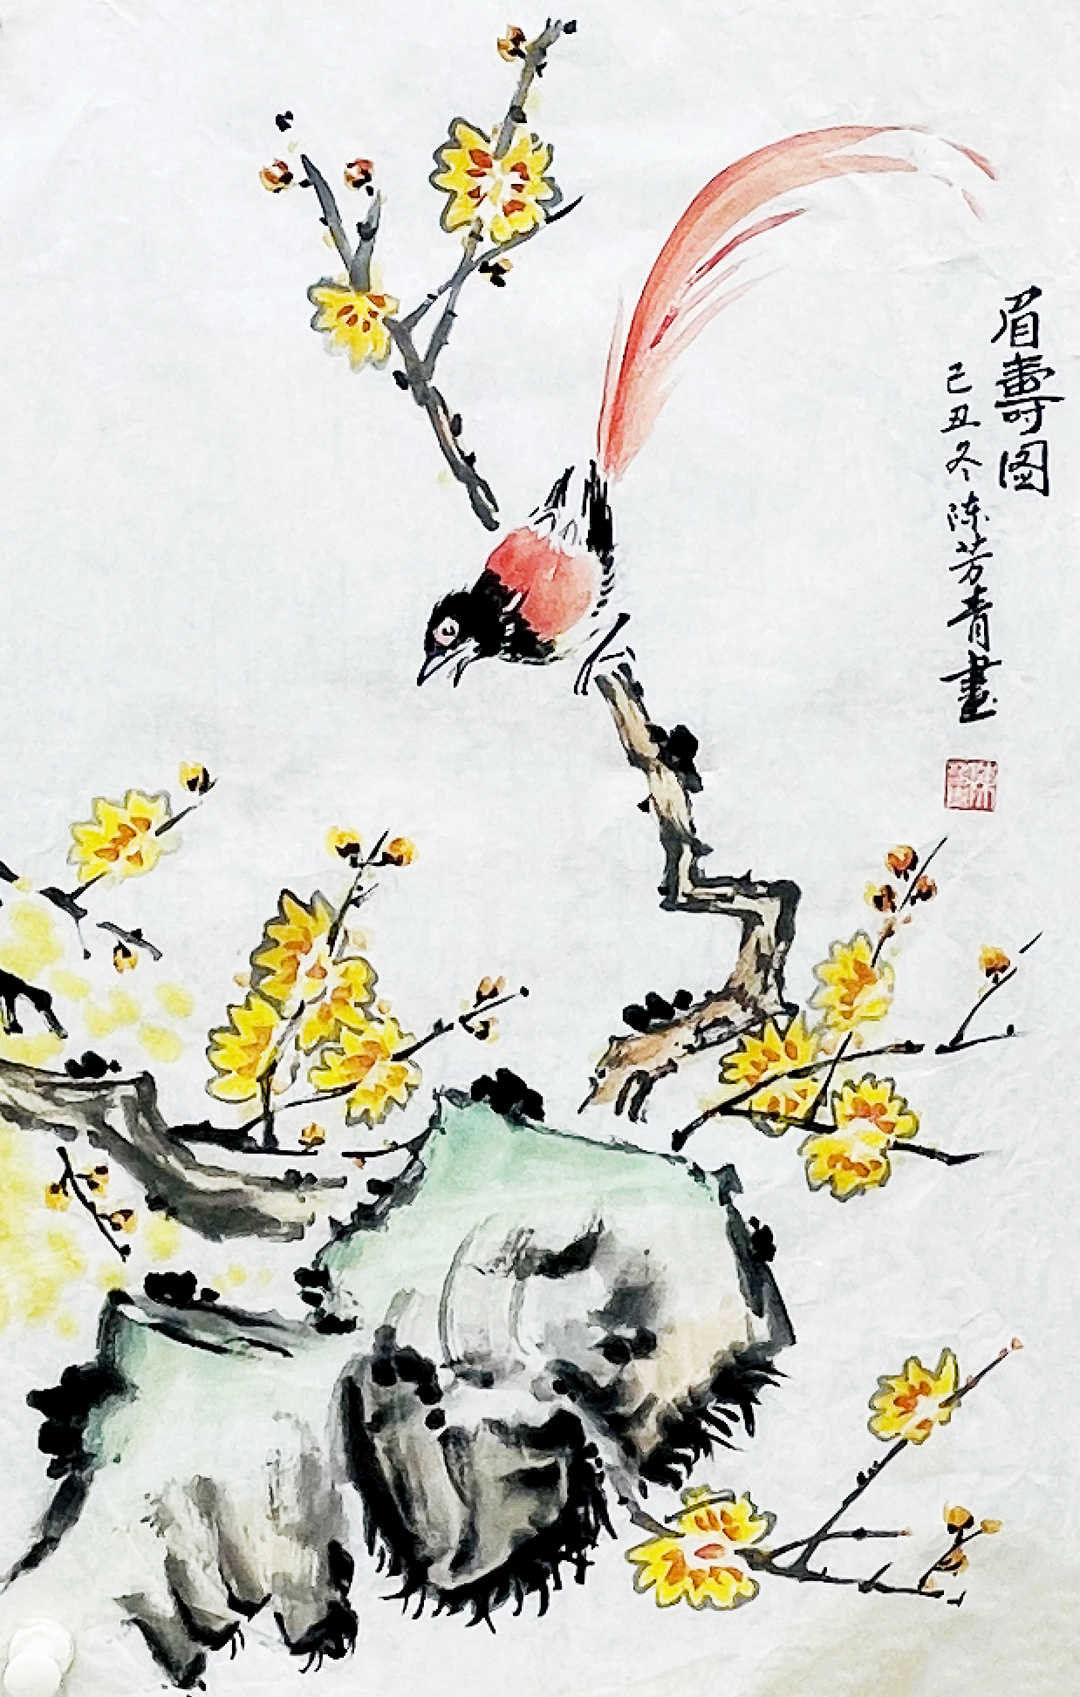 眉壽图
己丑冬陈芳青畫